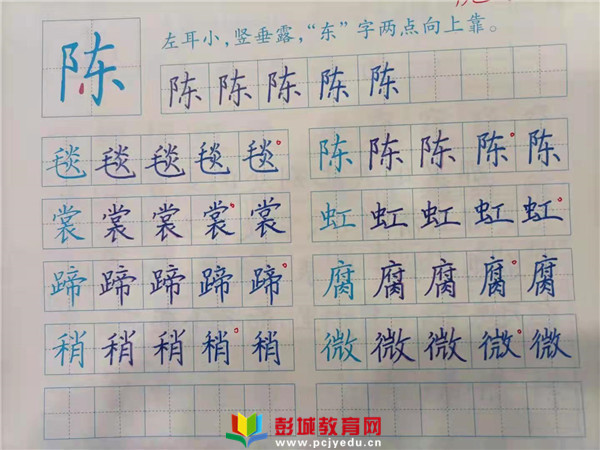 陈 左耳小,竖垂露,“东”字两点向上靠。
陈 陈 陈 陈 陈
毯 毯 毯 毯 毯 陈 陈 陈 陈 陈
裳 裳 裳 裳 裳 虹 虹 虹 虹 虹
蹄 蹄 蹄 蹄 蹄 腐 腐 腐 腐 腐
稍 稍 稍 稍 稍 微 微 微 微 微
彭城教育网
www.pcjyedu.cn